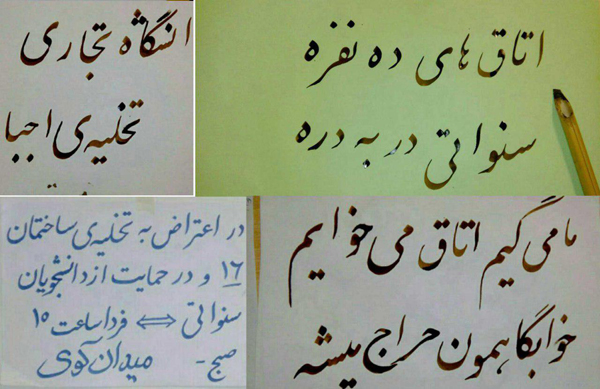 اتاق های ده نفره
سنواتی در به دره
انشگاه تجاری
تخلیه ی اجبا
ما می گیم اتاق می خوایم
خوابگاهمون حراج میشه
در اعتراض به تخلیه ی ساختمان
۱۶ و در حمایت از دانشجویان
سنواتی ⇔ فردا ساعت ۱۰
صبح - میدان کوی